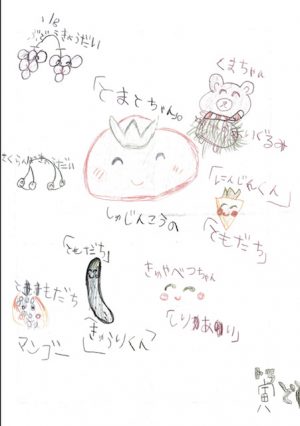 ぶどうきょうだい
くまちゃん
ぬいぐるみ
「とまとちゃん」
しゅじんこうの
さくらんぼきょうだい
「にんじんくん」
ともだち
「ともだち」
「きゅうりくん」
ともだち
マンゴー
きゃべつちゃん
「しりあい」
寅